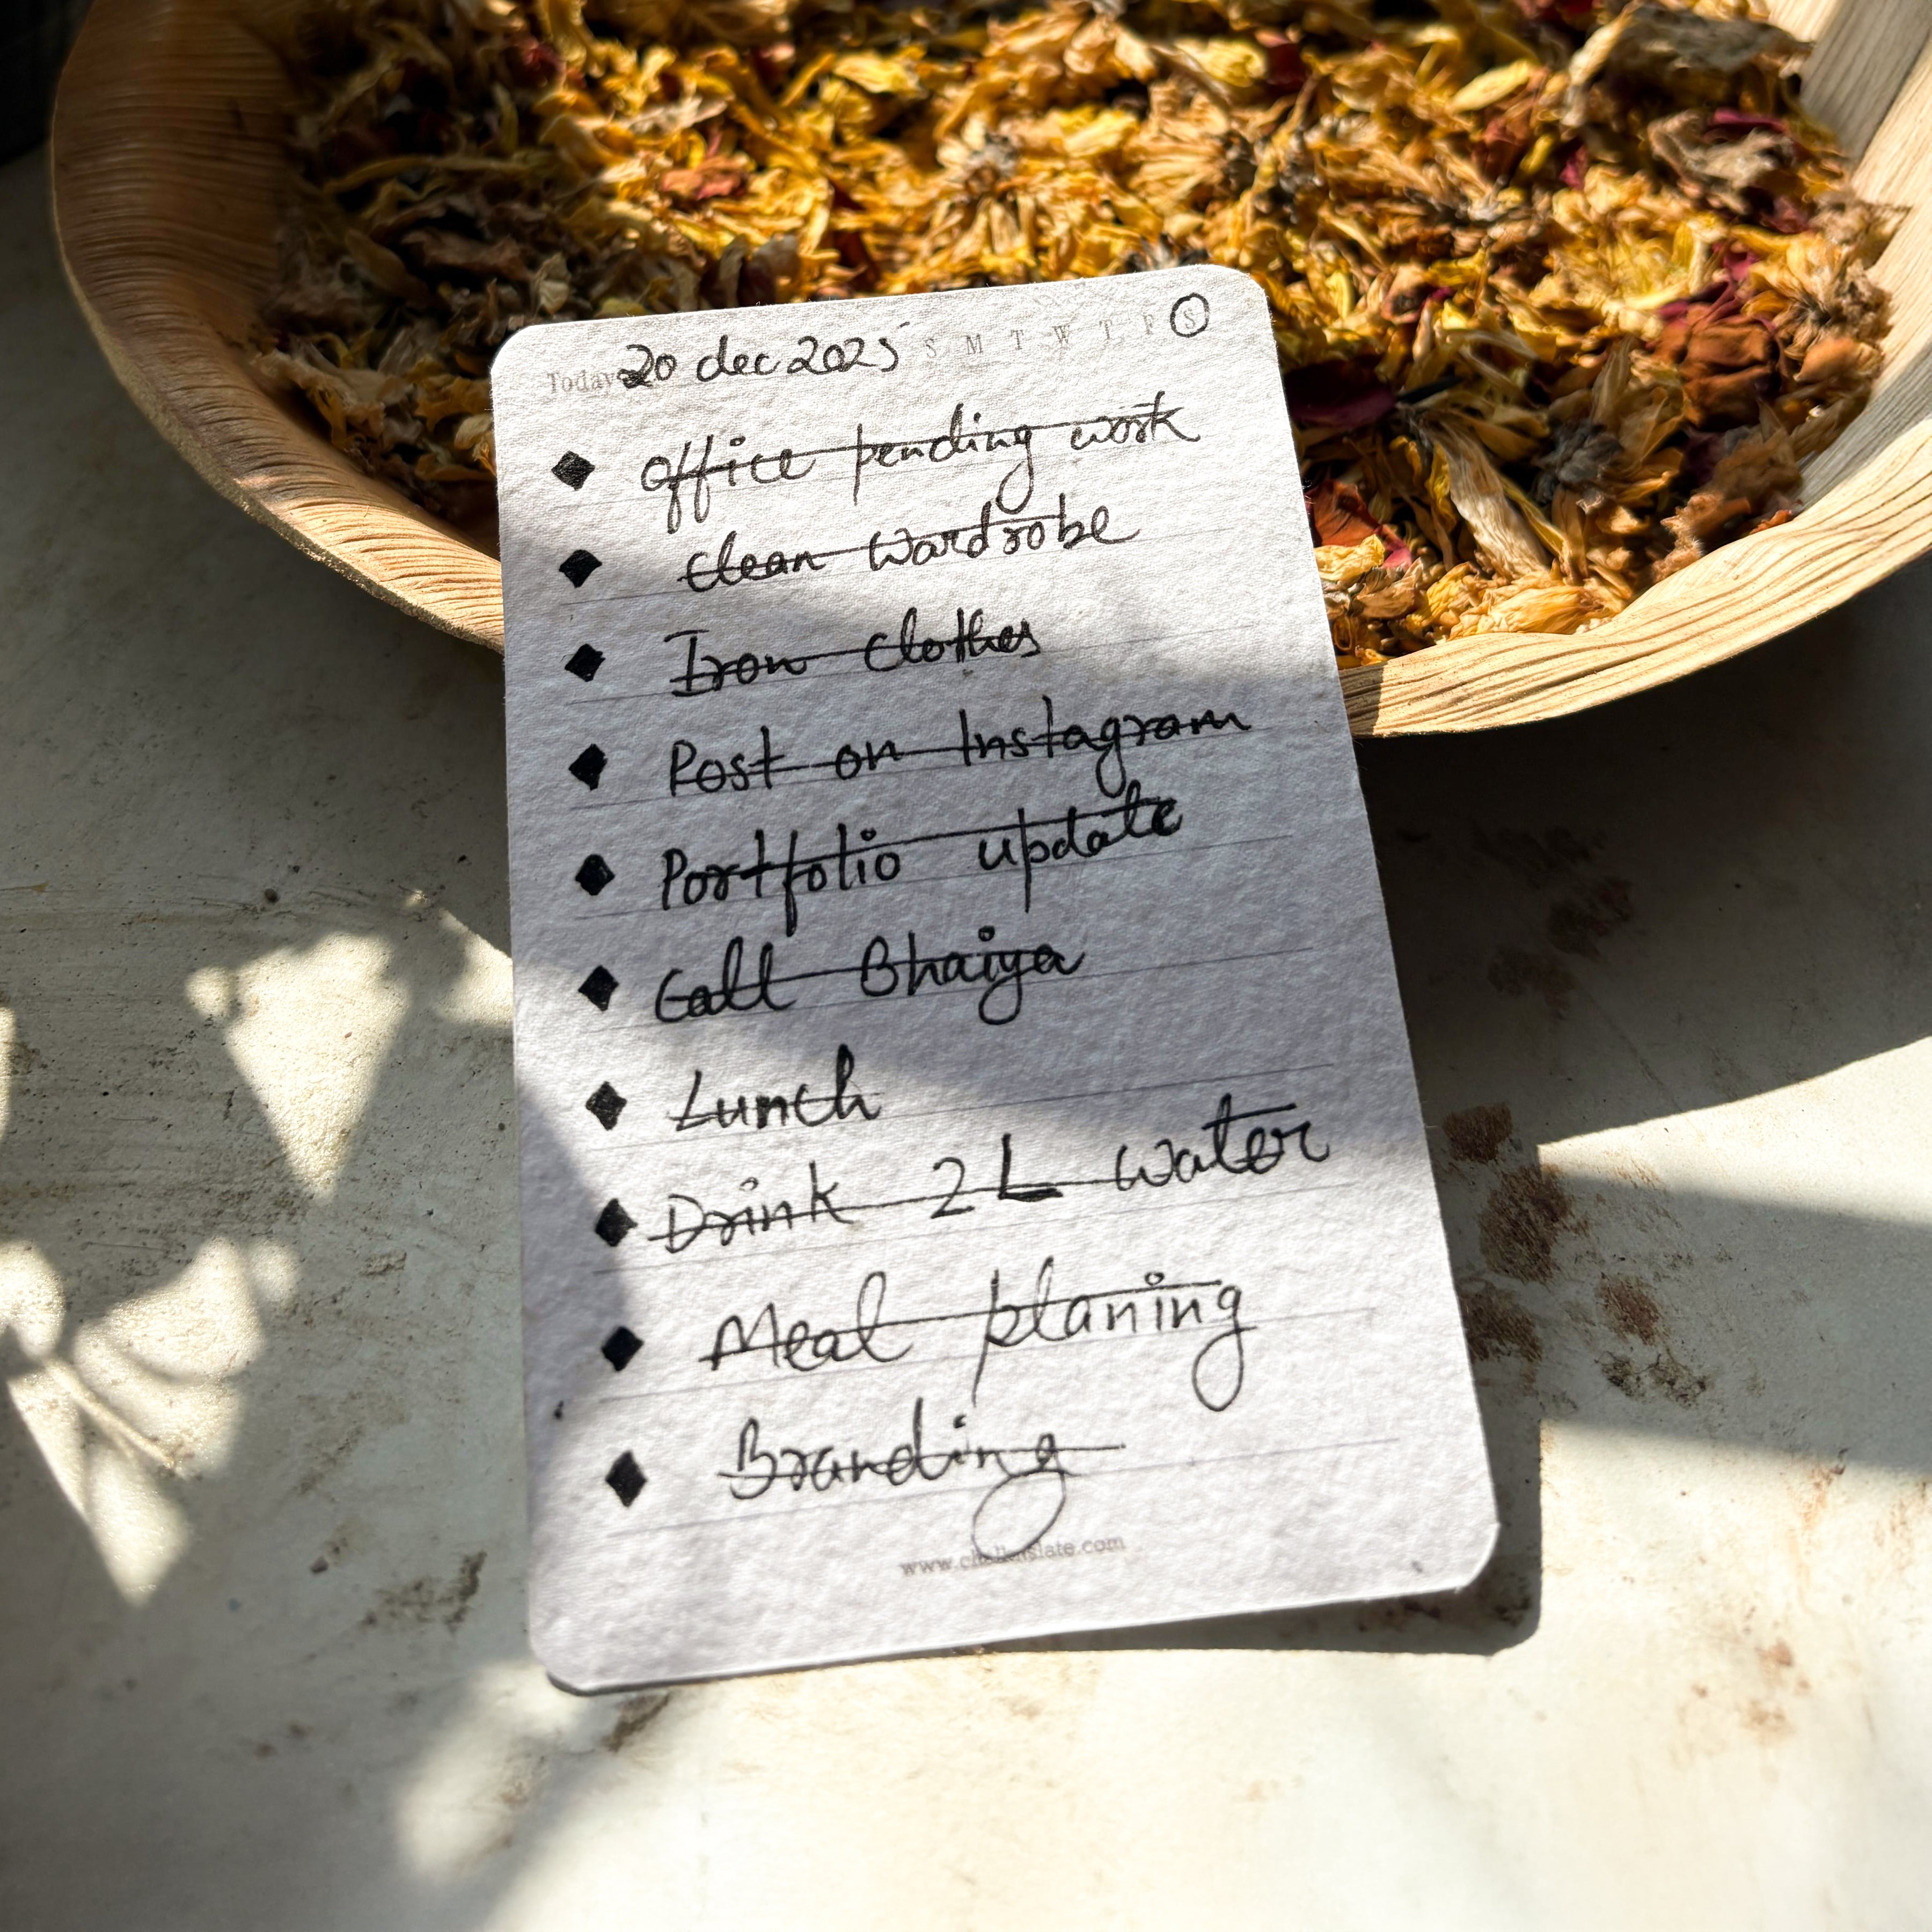 Today 20 dec 2025 S M T W T F S
Office pending work
Clean Wardrobe
Iron Clothes
Post on Instagram
Portfolio update
Call Bhaiya
Lunch
Drink 2 L water
Meal planing
Branding